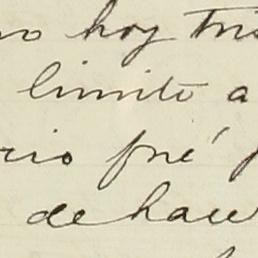 no hoy tris
limito a
rio fué
de hace